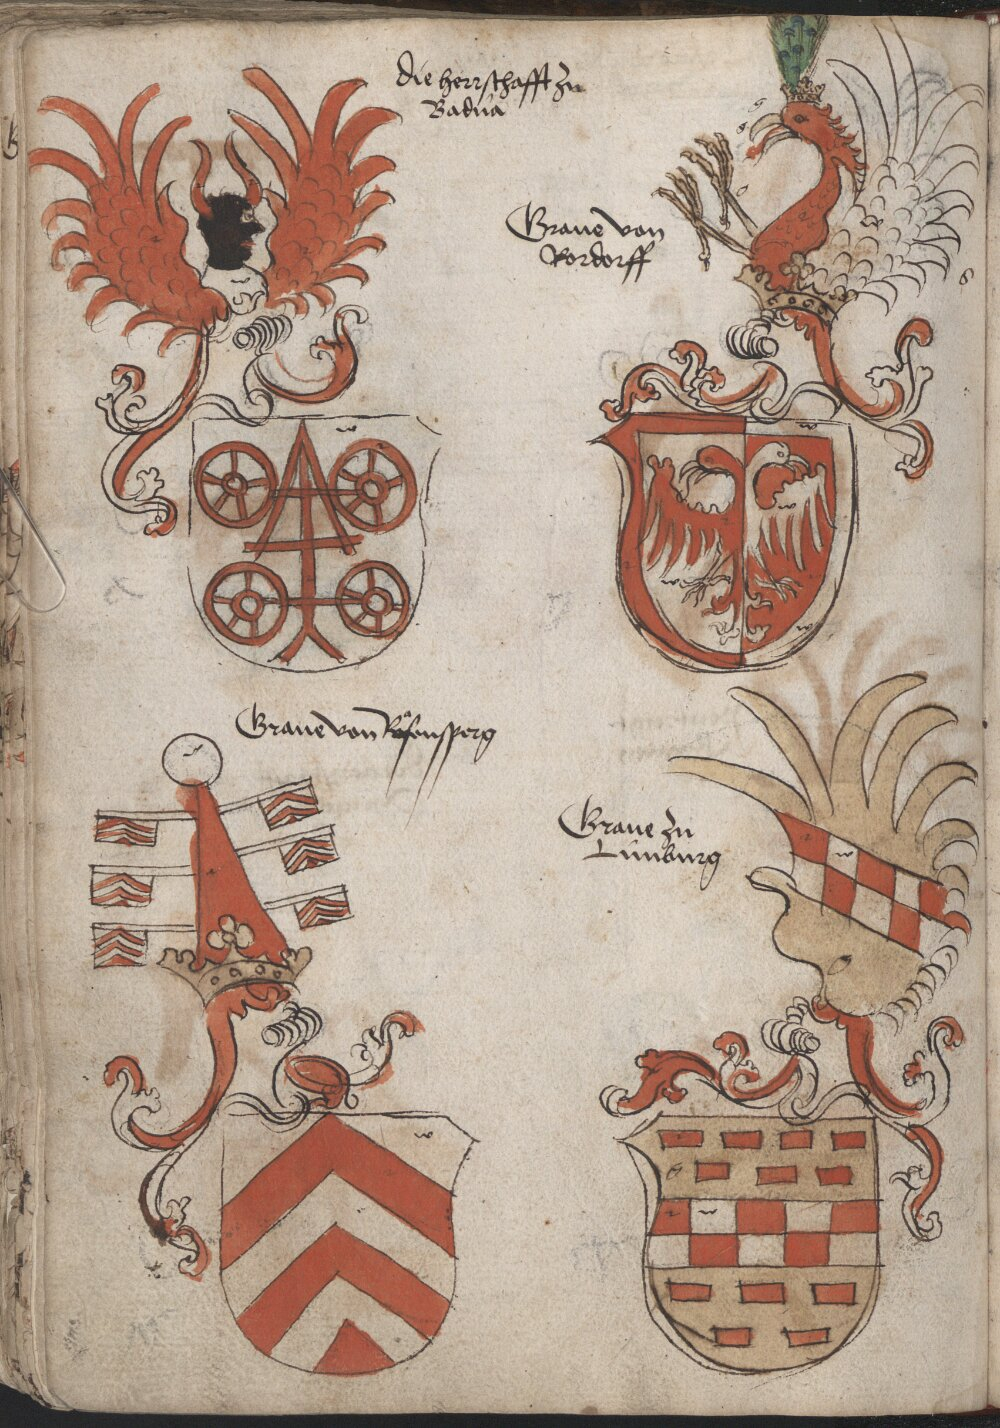 die herrschafft zu
Badua
Graue von
Rordorff
Graue von Rosensperg
Graue zu
Limburg
w
w
w
w
w
w
w
w
w